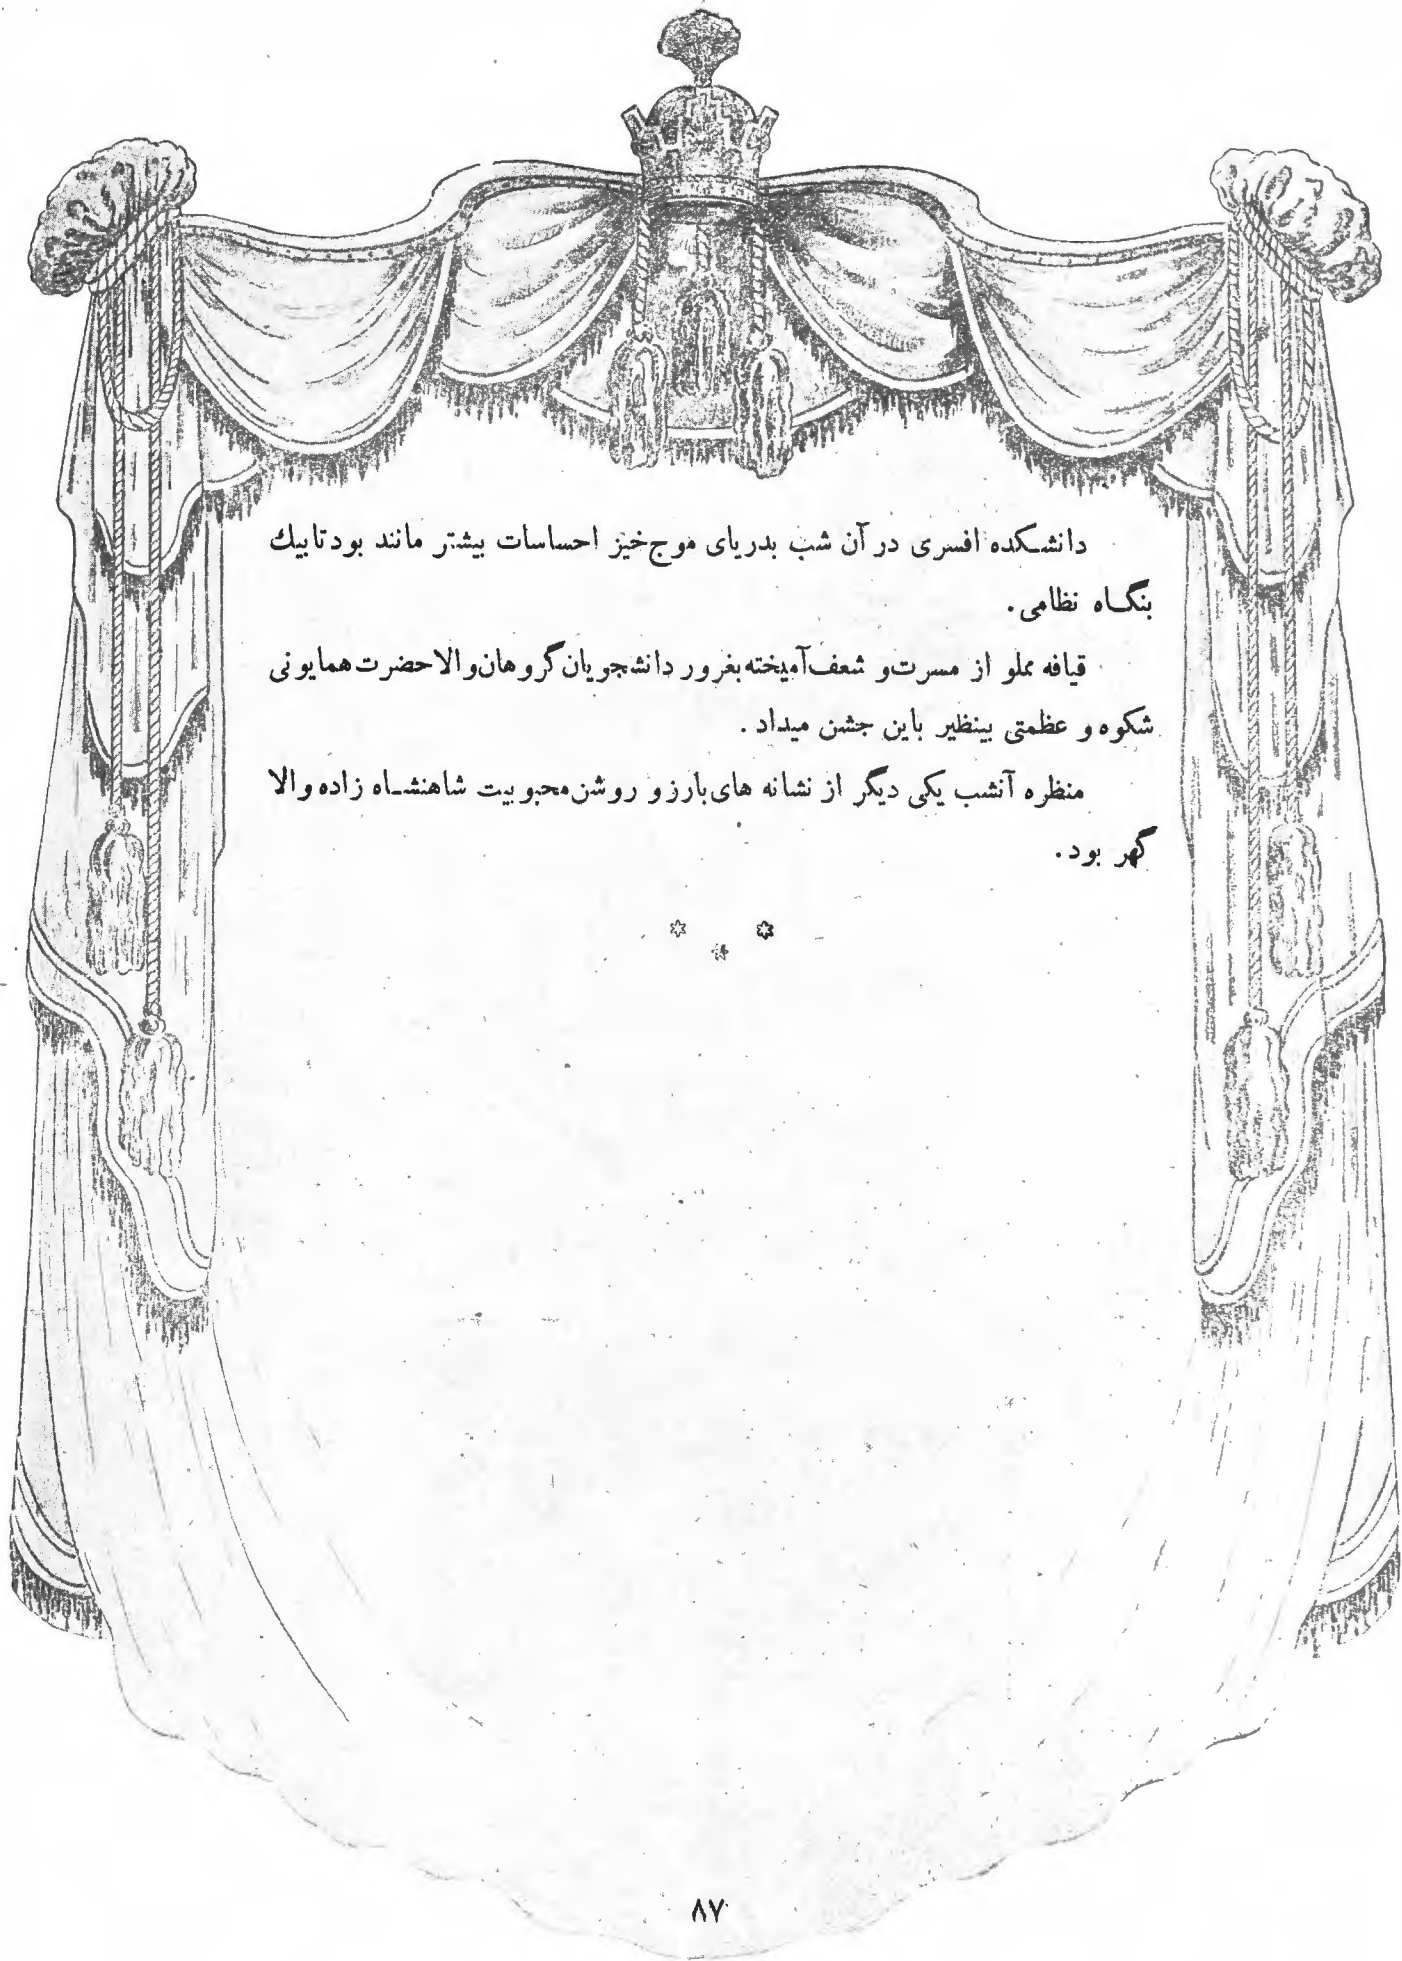 دانشکده افسری در آن شب بدریای موج‌خیز احساسات بیشتر مانند بود تا بیك
بنگاه نظامی.
قیافه مملو از مسرت و شعف آمیخته بغرور دانشجویان گروهان والاحضرت همایونی
شکوه و عظمتی بینظیر باین جشن میداد.
منظره آنشب یکی دیگر از نشانه های بارز و روشن محبوبیت شاهنشاه زاده والا
گهر بود.
* * *
۸۷